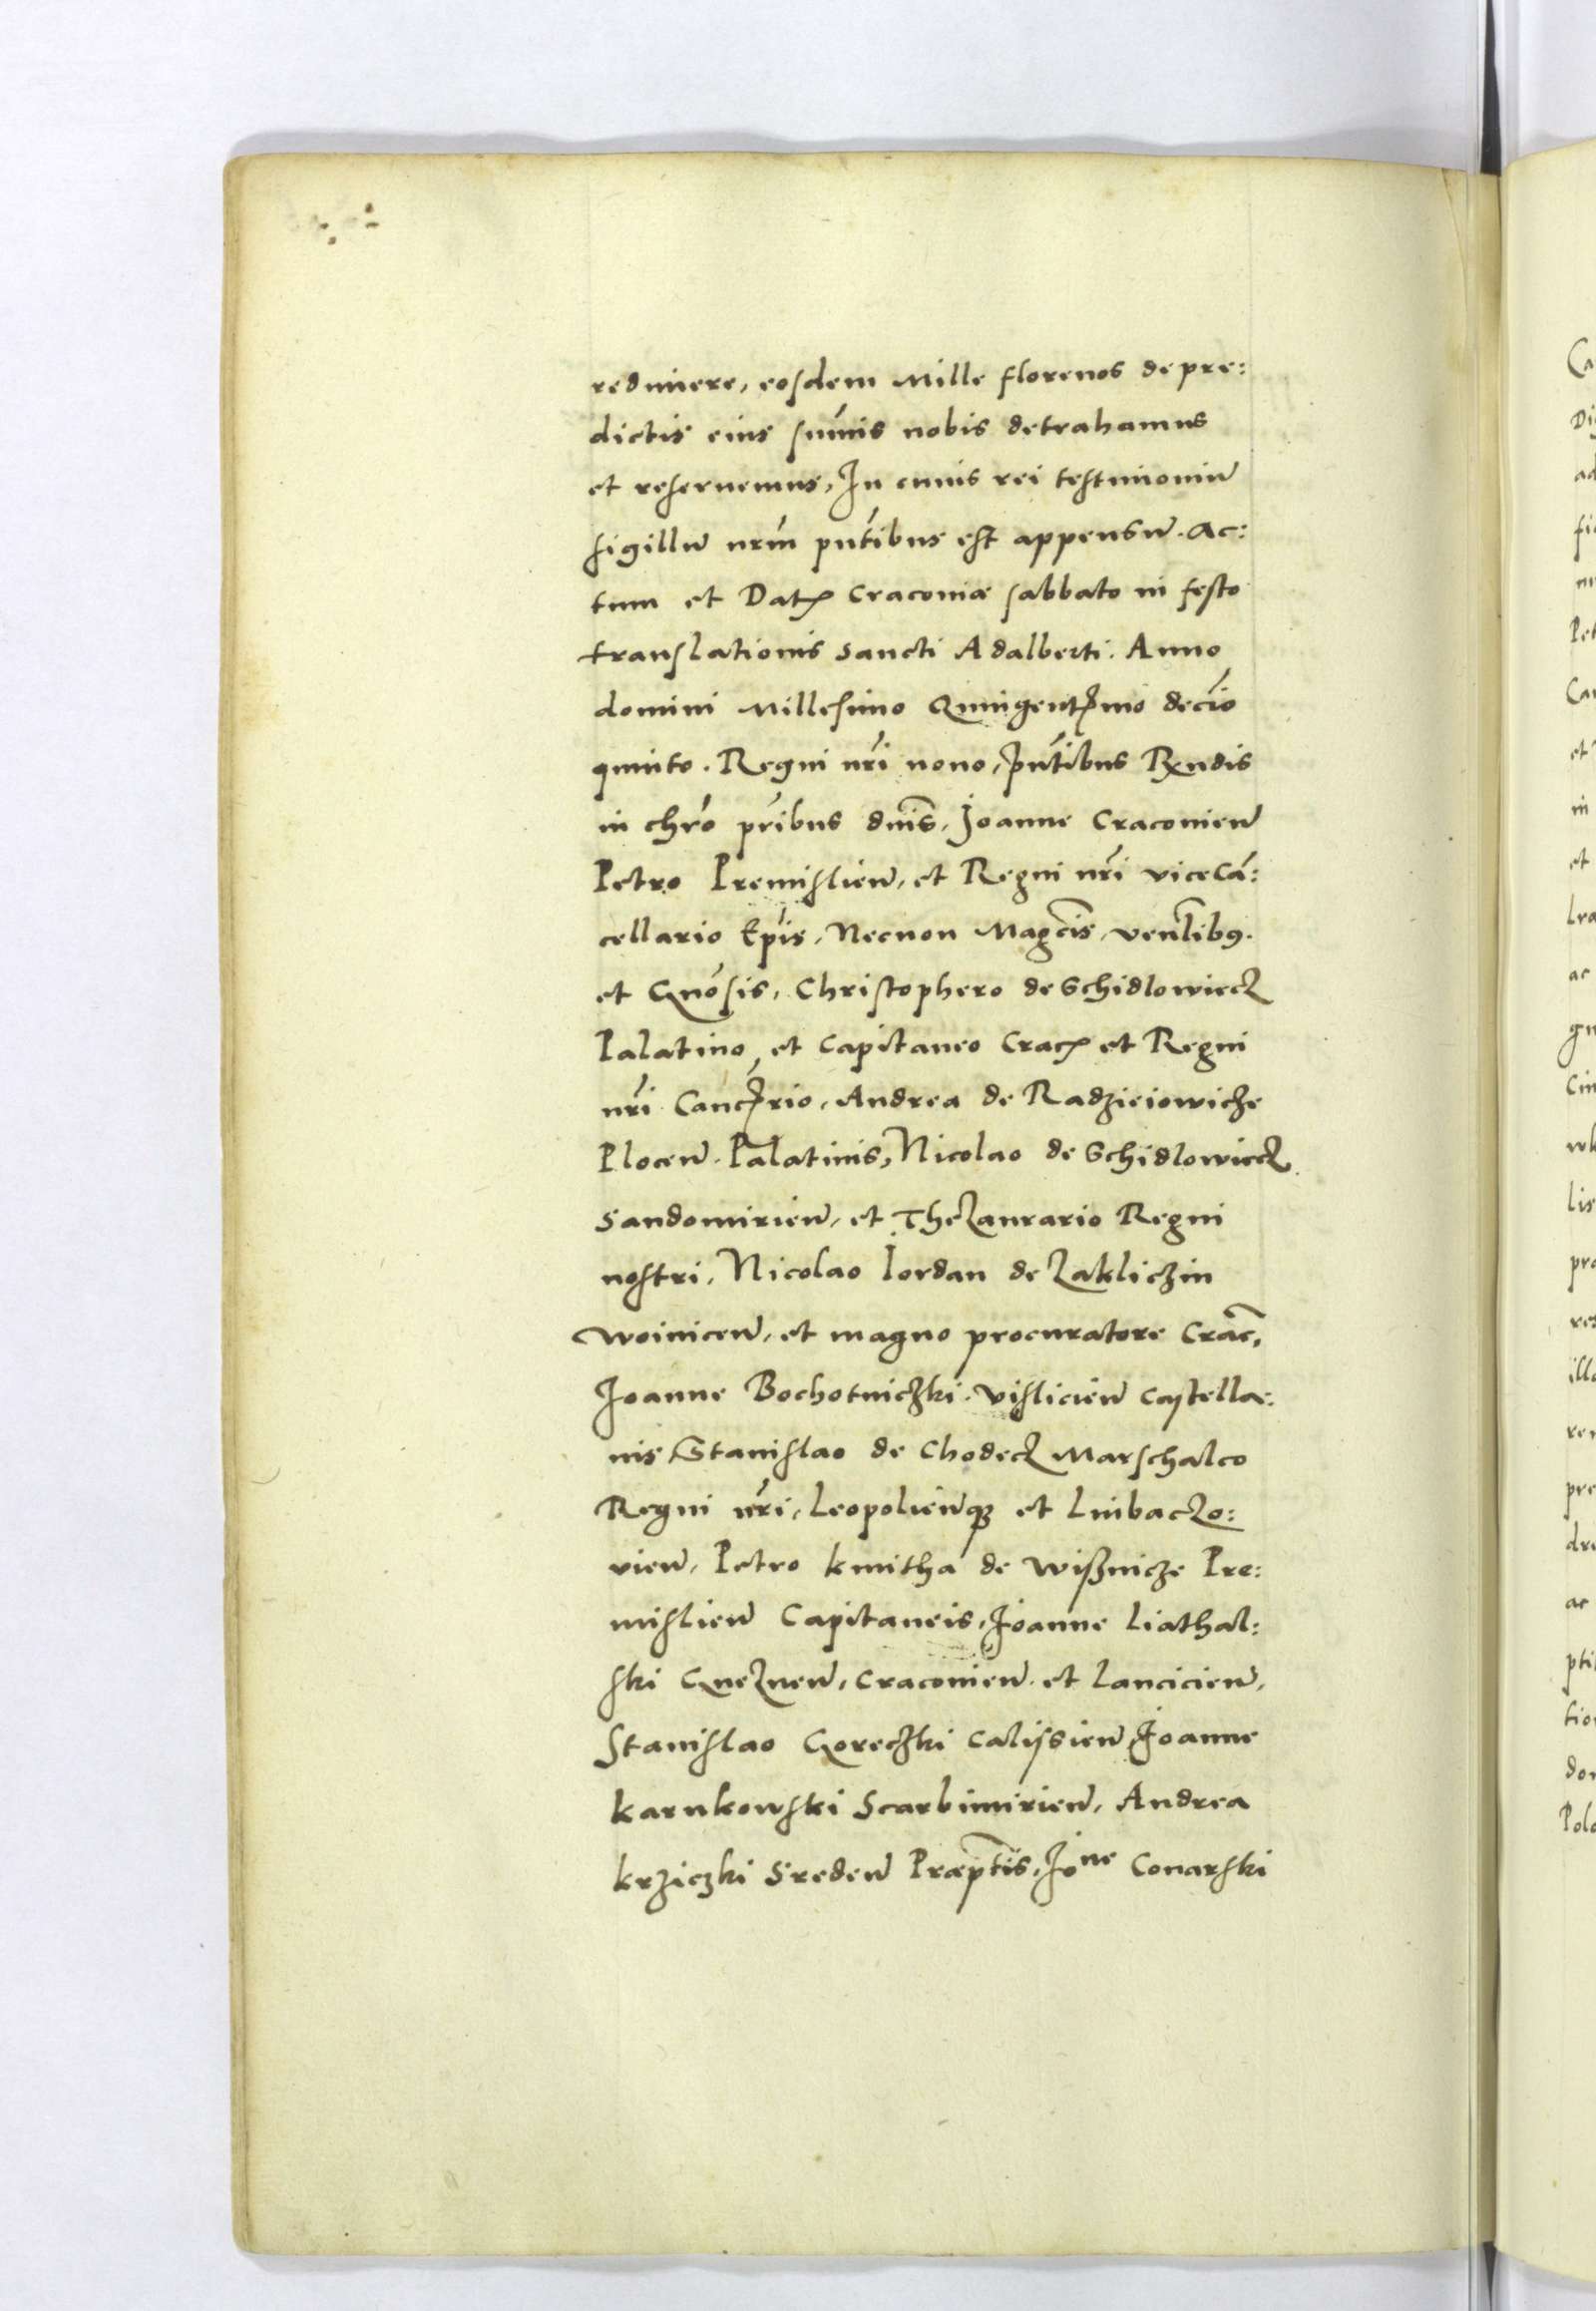 redimere, eosdem Mille florenos de pre:
dictis eius sum̄is nobis detrahamus
et reseruemus, In cuius rei testimoniū
sigillū nrm̄ pn̄tibus est appensū. Ac:
tum et Datꝭ Craconiæ sabbato in festo
translationis sancti Adalberti. Anno
domini Millesimo Quingentꝭmo decīo
quinto. Regni nr̄i nono, pn̄tibus Rx̄ndis
in chr̄o pr̄ibus dn̄is, Joanne Cracouien̄
Petro Premislien̄, et Regni nr̄i viceCā:
cellario Ep̄is, Necnon Magc̄is, venl̄ibꝰ.
et Gn̄osis, Christophero de Schidlowiecz
Palatino et Capitaneo Cracꝭ et Regni
nr̄i Cancꝭrio, Andrea de Radzieiowicze
Plocen̄. Palatinis, Nicolao de Schidlowiecz
Sandomirien̄, et Thezaurario Regni
nostri, Nicolao Iordan de Zakliczin
Woinicen̄, et magno procuratore Crac̄,
Joanne Bochotniczki. Vislicien̄ Castella:
nis, Stanislao de Chodecz Marschalco
Regni nr̄i, Leopolien̄qꝫ et Luibaczo:
vien̄, Petro kmitha de Wißnicze Pre:
mislien̄ Capitaneis, Joanne Liathal:
ski Gneznen̄, Cracouien̄. et Lancicien̄,
Stanislao Goreczki Calissien̄, Joanne
karnkowski Scarbimirien̄, Andrea
krziczki Sreden̄ Præpt̄is, Jone Conarski